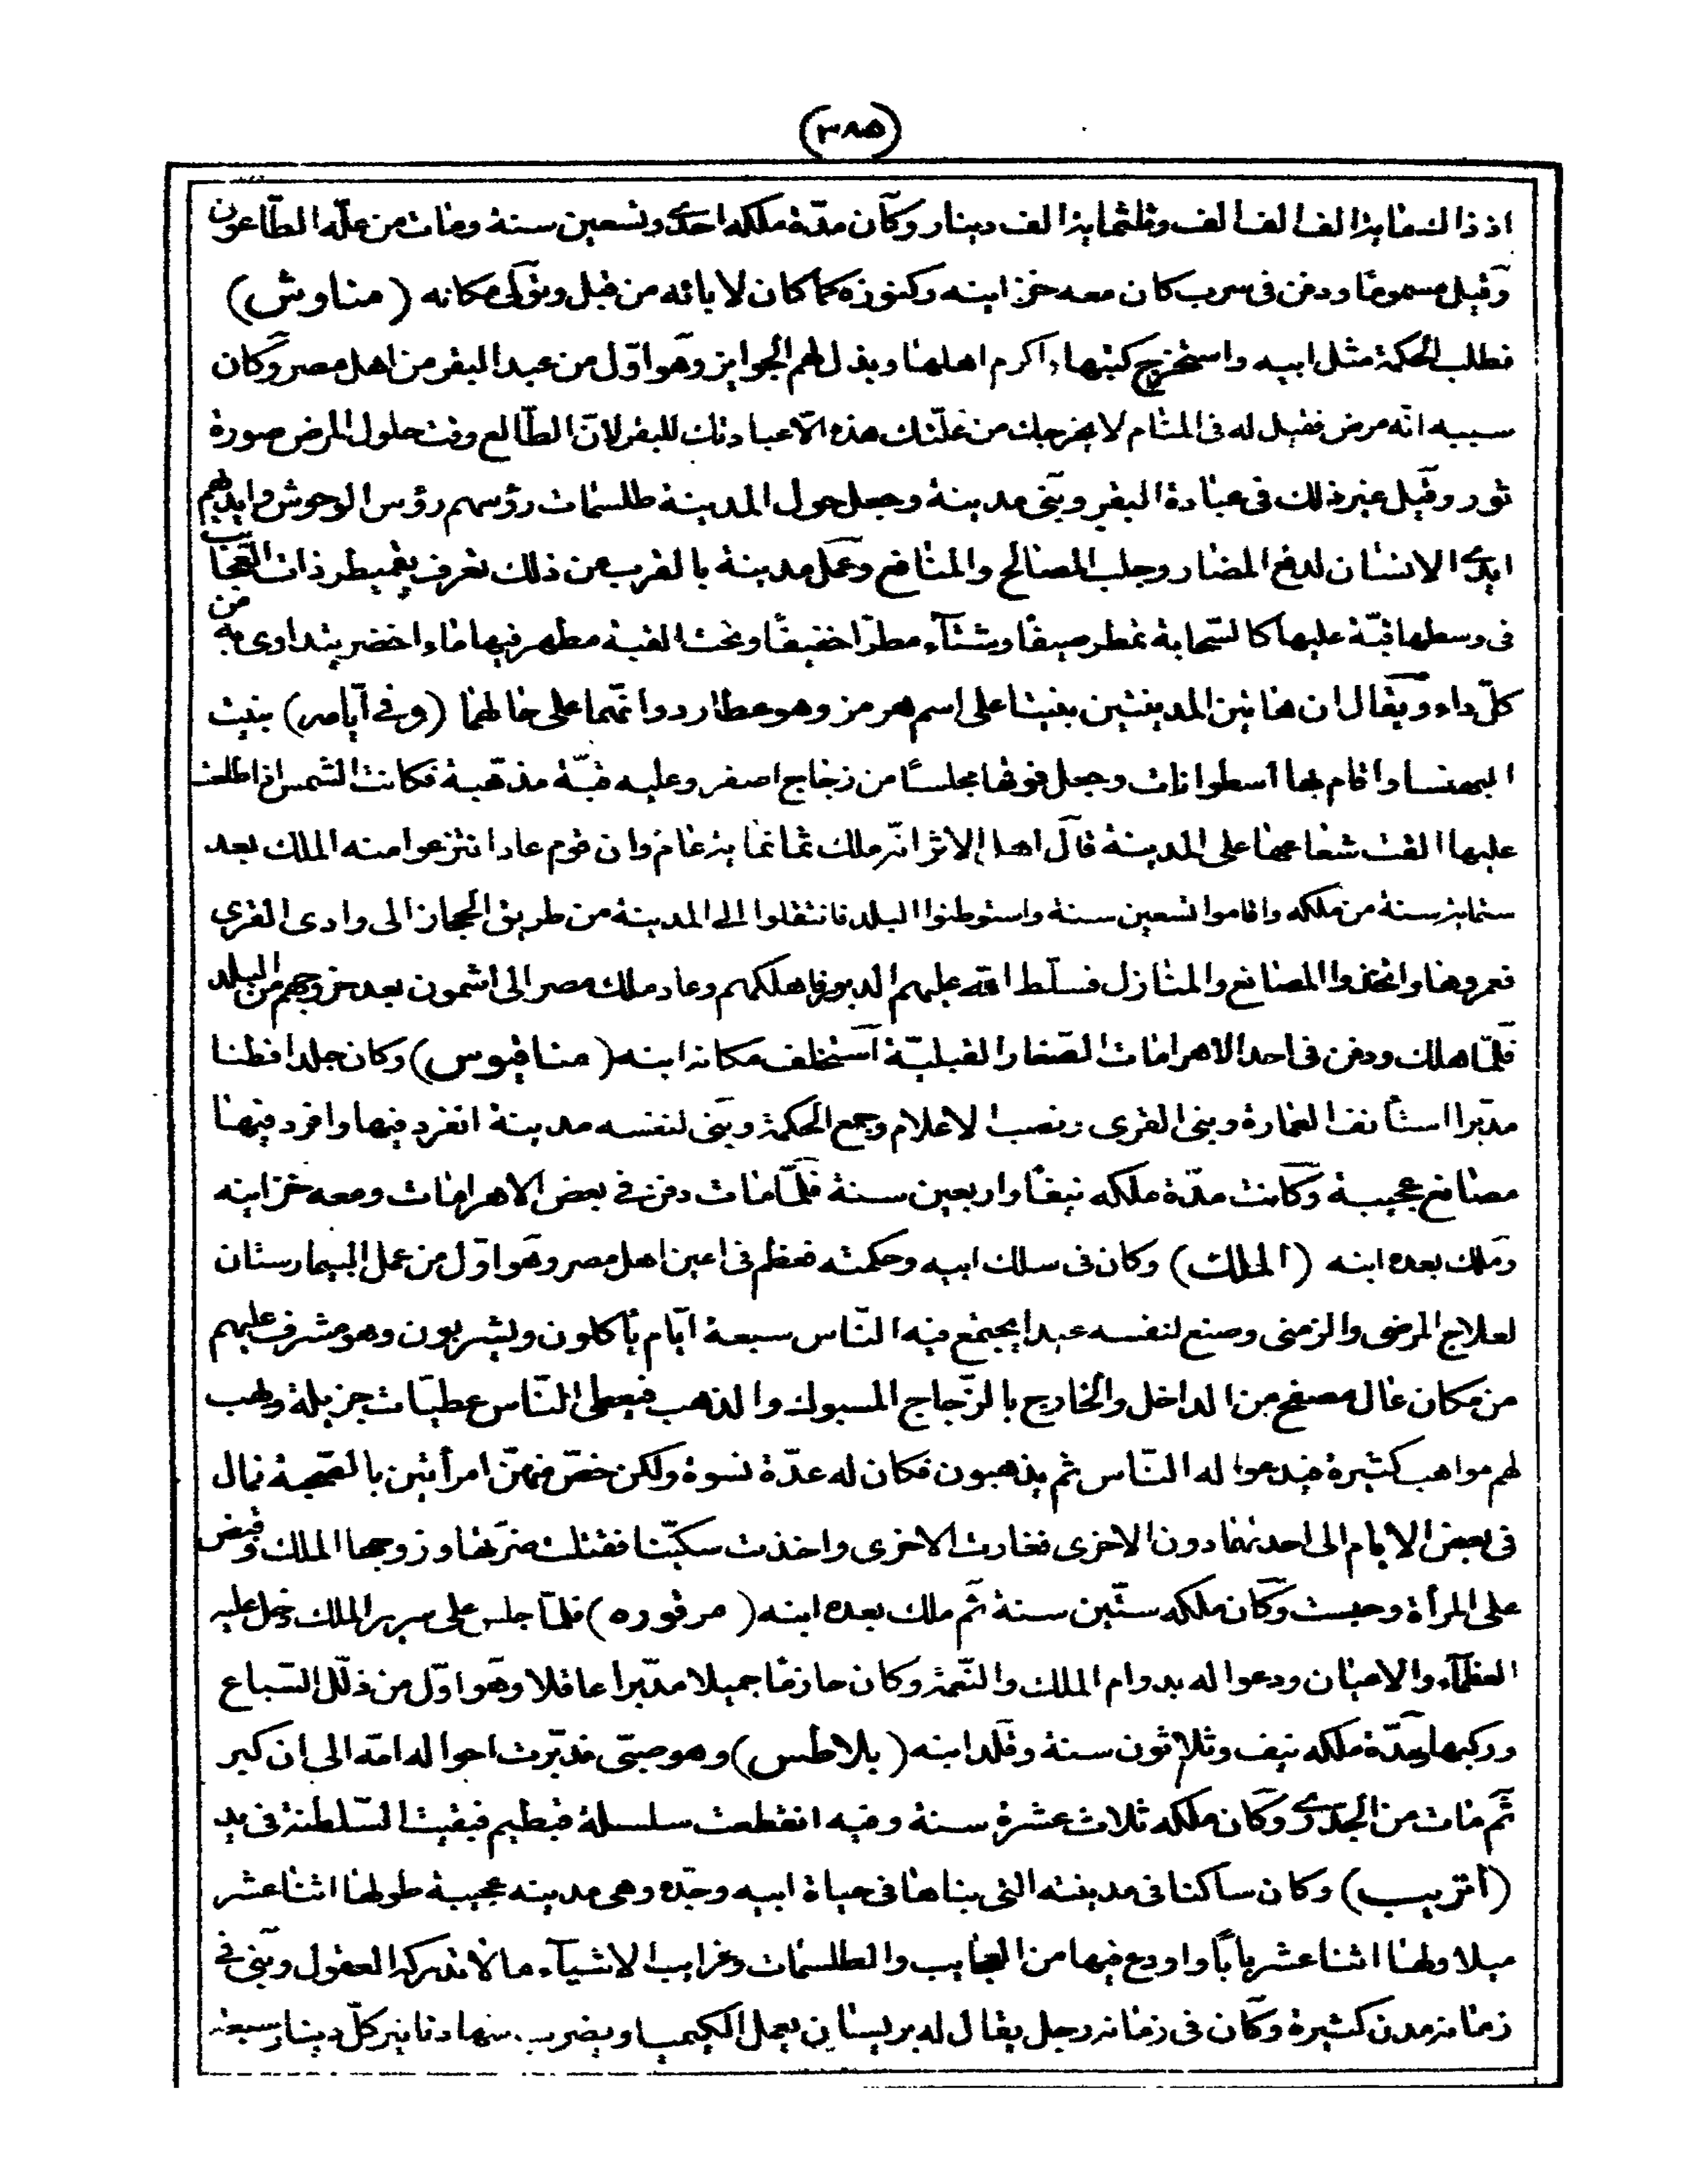 (٣٨٥)
اذ ذاك مائة الف الف الف وثلثمائة الف دينار وكان مدّة ملكه احدى وتسعين سنة ومات من علّة الطّاعون
وقيل مسموما ودفن فى سرب كان معه خزاينه وكنوزه كما كان لابائه من قبل وتولى مكانه (مناوش)
فطلب الحكمة مثل ابيه واستخرج كتبها واكرم اهلها وبذل لهم الجوايز وهو اوّل من عبد البقر من اهل مصر وكان
سببه انّه مرض فقيل له فى المنام لا يخرجك من علّتك هذه الّا عبادتك للبقر لانّ الطّالع وقت حلول المرض صورة
ثور وقيل غير ذلك فى عبادة البقر وبنى مدينة وجعل حول المدينة طلسمات رؤسهم رؤس الوحوش وايديهم
ايدى الانسان لدفع المضار وجلب المصالح والمنافع وعمل مدينة بالقرب من ذلك تعرف بقميطر ذات العجايب
فى وسطها قبّة عليها كالسّحابة تمطر صيفًا وشتآء مطرًا خفيفًا وتحت القبة مطهر فيها ماء اخضر يتداوى به من
كلّ داء ويقال ان هاتين المدينتين بنيتا على اسم هرمز وهو عطارد وانّهما على حالهما (وفى ايّامه) بنيت
البهنسا واقام بها اسطوانات وجعل فوقها مجلسًا من زجاج اصفر وعليه قبّة مذهبة فكانت الشمس اذا طلعت
عليها القت شعاعها على المدينة قال اهل الاثر انّه ملك ثمانمائة عام وان قوم عاد انتزعوا منه الملك بعد
ستمائة سنة من ملكه واقاموا تسعين سنة واستوطنوا البلد فانتقلوا الى المدينة من طريق الحجاز الى وادى القرى
فعمروها واتخذوا المصانع والمنازل فسلّط الله عليهم الدبور فاهلكهم وعاد ملك مصر الى اشمون بعد خروجهم من البلد
فلمّا هلك ودفن فى احد الاهرامات الصّغار القبليّة استخلف مكانه ابنه (مناقيوس) وكان جلدا فطنا
مدبّرا استأنف العمارة وبنى القرى ونصب الاعلام وجمع الحكمة وبنى لنفسه مدينة انفرد فيها وافرد فيها
مصانع عجيبة وكانت مدّة ملكه نيفًا واربعين سنة فلمّا مات دفن فى بعض الاهرامات ومعه خزاينه
وملك بعده ابنه (الملك) وكان فى سلك ابيه وحكمته فعظم فى اعين اهل مصر وهو اوّل من عمل البيمارستان
لعلاج المرضى والزمنى وصنع لنفسه عيدا يجتمع فيه النّاس سبعة ايّام يأكلون ويشربون وهو مشرف عليهم
من مكان عال مصفح من الداخل والخارج بالزّجاج المسبوك والذهب فيعطى النّاس عطيّات جزيلة ويهب
لهم مواهب كثيرة فيدعوا له النّاس ثم يذهبون فكان له عدّة نسوة ولكن خصّ منهنّ امرأتين بالصّحبة فمال
فى بعض الايام الى احدتهما دون الاخرى فغارت الاخرى واخذت سكيّنا فقتلت ضرّتها وزوجها الملك وقبض
على المرأة وحبست وكان ملكه ستّين سنة ثمّ ملك بعده ابنه (مرقوره) فلمّا جلس على سرير الملك دخل عليه
العظمآء والاعيان ودعوا له بدوام الملك والنّعمة وكان حازمًا جميلا مدبّرا عاقلا وهو اوّل من ذلّل السّباع
وركبها ومدّة ملكه نيف وثلاثون سنة وقلد ابنه (بلاطس) وهو صبّى فدبّرت احواله امّه الى ان كبر
ثمّ مات من الجدرى وكان ملكه ثلاث عشرة سنة وفيه انقطعت سلسلة قبطيم فبقيت السّلطنة فى يد
(اتريب) وكان ساكنا فى مدينته التى بناها فى حياة ابيه وجدّه وهى مدينه عجيبة طولها اثنا عشر
ميلا ولها اثنا عشر بابًا واودع فيها من العجايب والطلسمات وغرايب الاشيآء ما لا تدركه العقول وبنى فى
زمانه مدن كثيرة وكان فى زمانه رجل يقال له برسان يعمل الكيميا ويضرب منها دنانير كلّ دينار سبعة